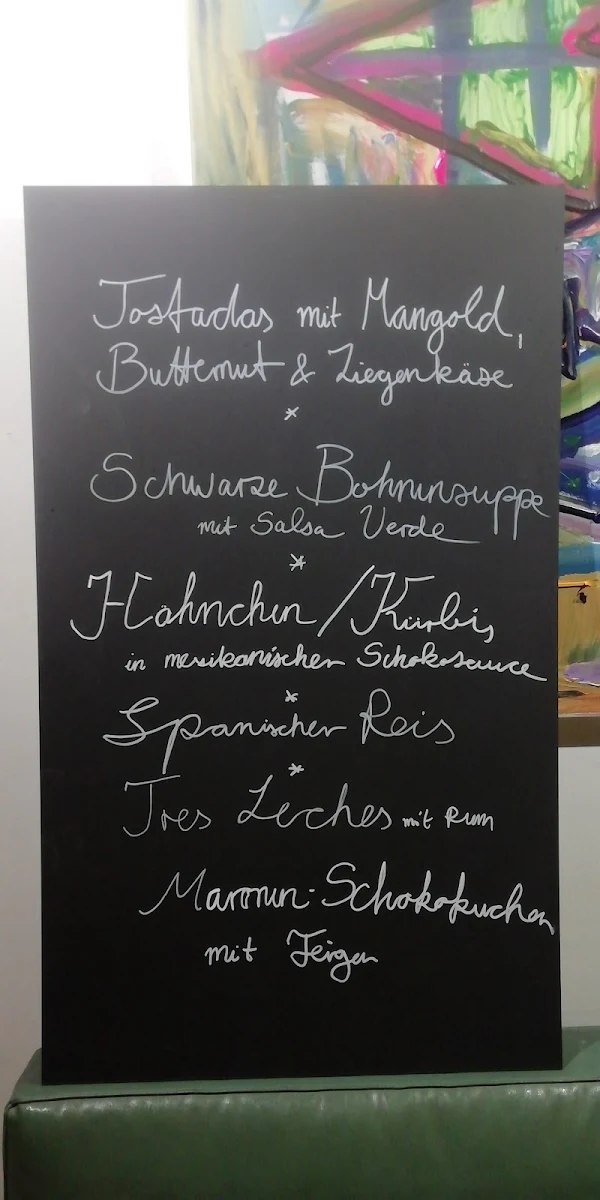 Tostadas mit Mangold,
Butternut & Ziegenkäse
*
Schwarze Bohnensuppe
mit Salsa Verde
*
Hähnchen/Kürbis
in mexikanischer Schokosauce
*
Spanischer Reis
*
Tres Leches mit Rum
Maronen-Schokokuchen
mit Feigen